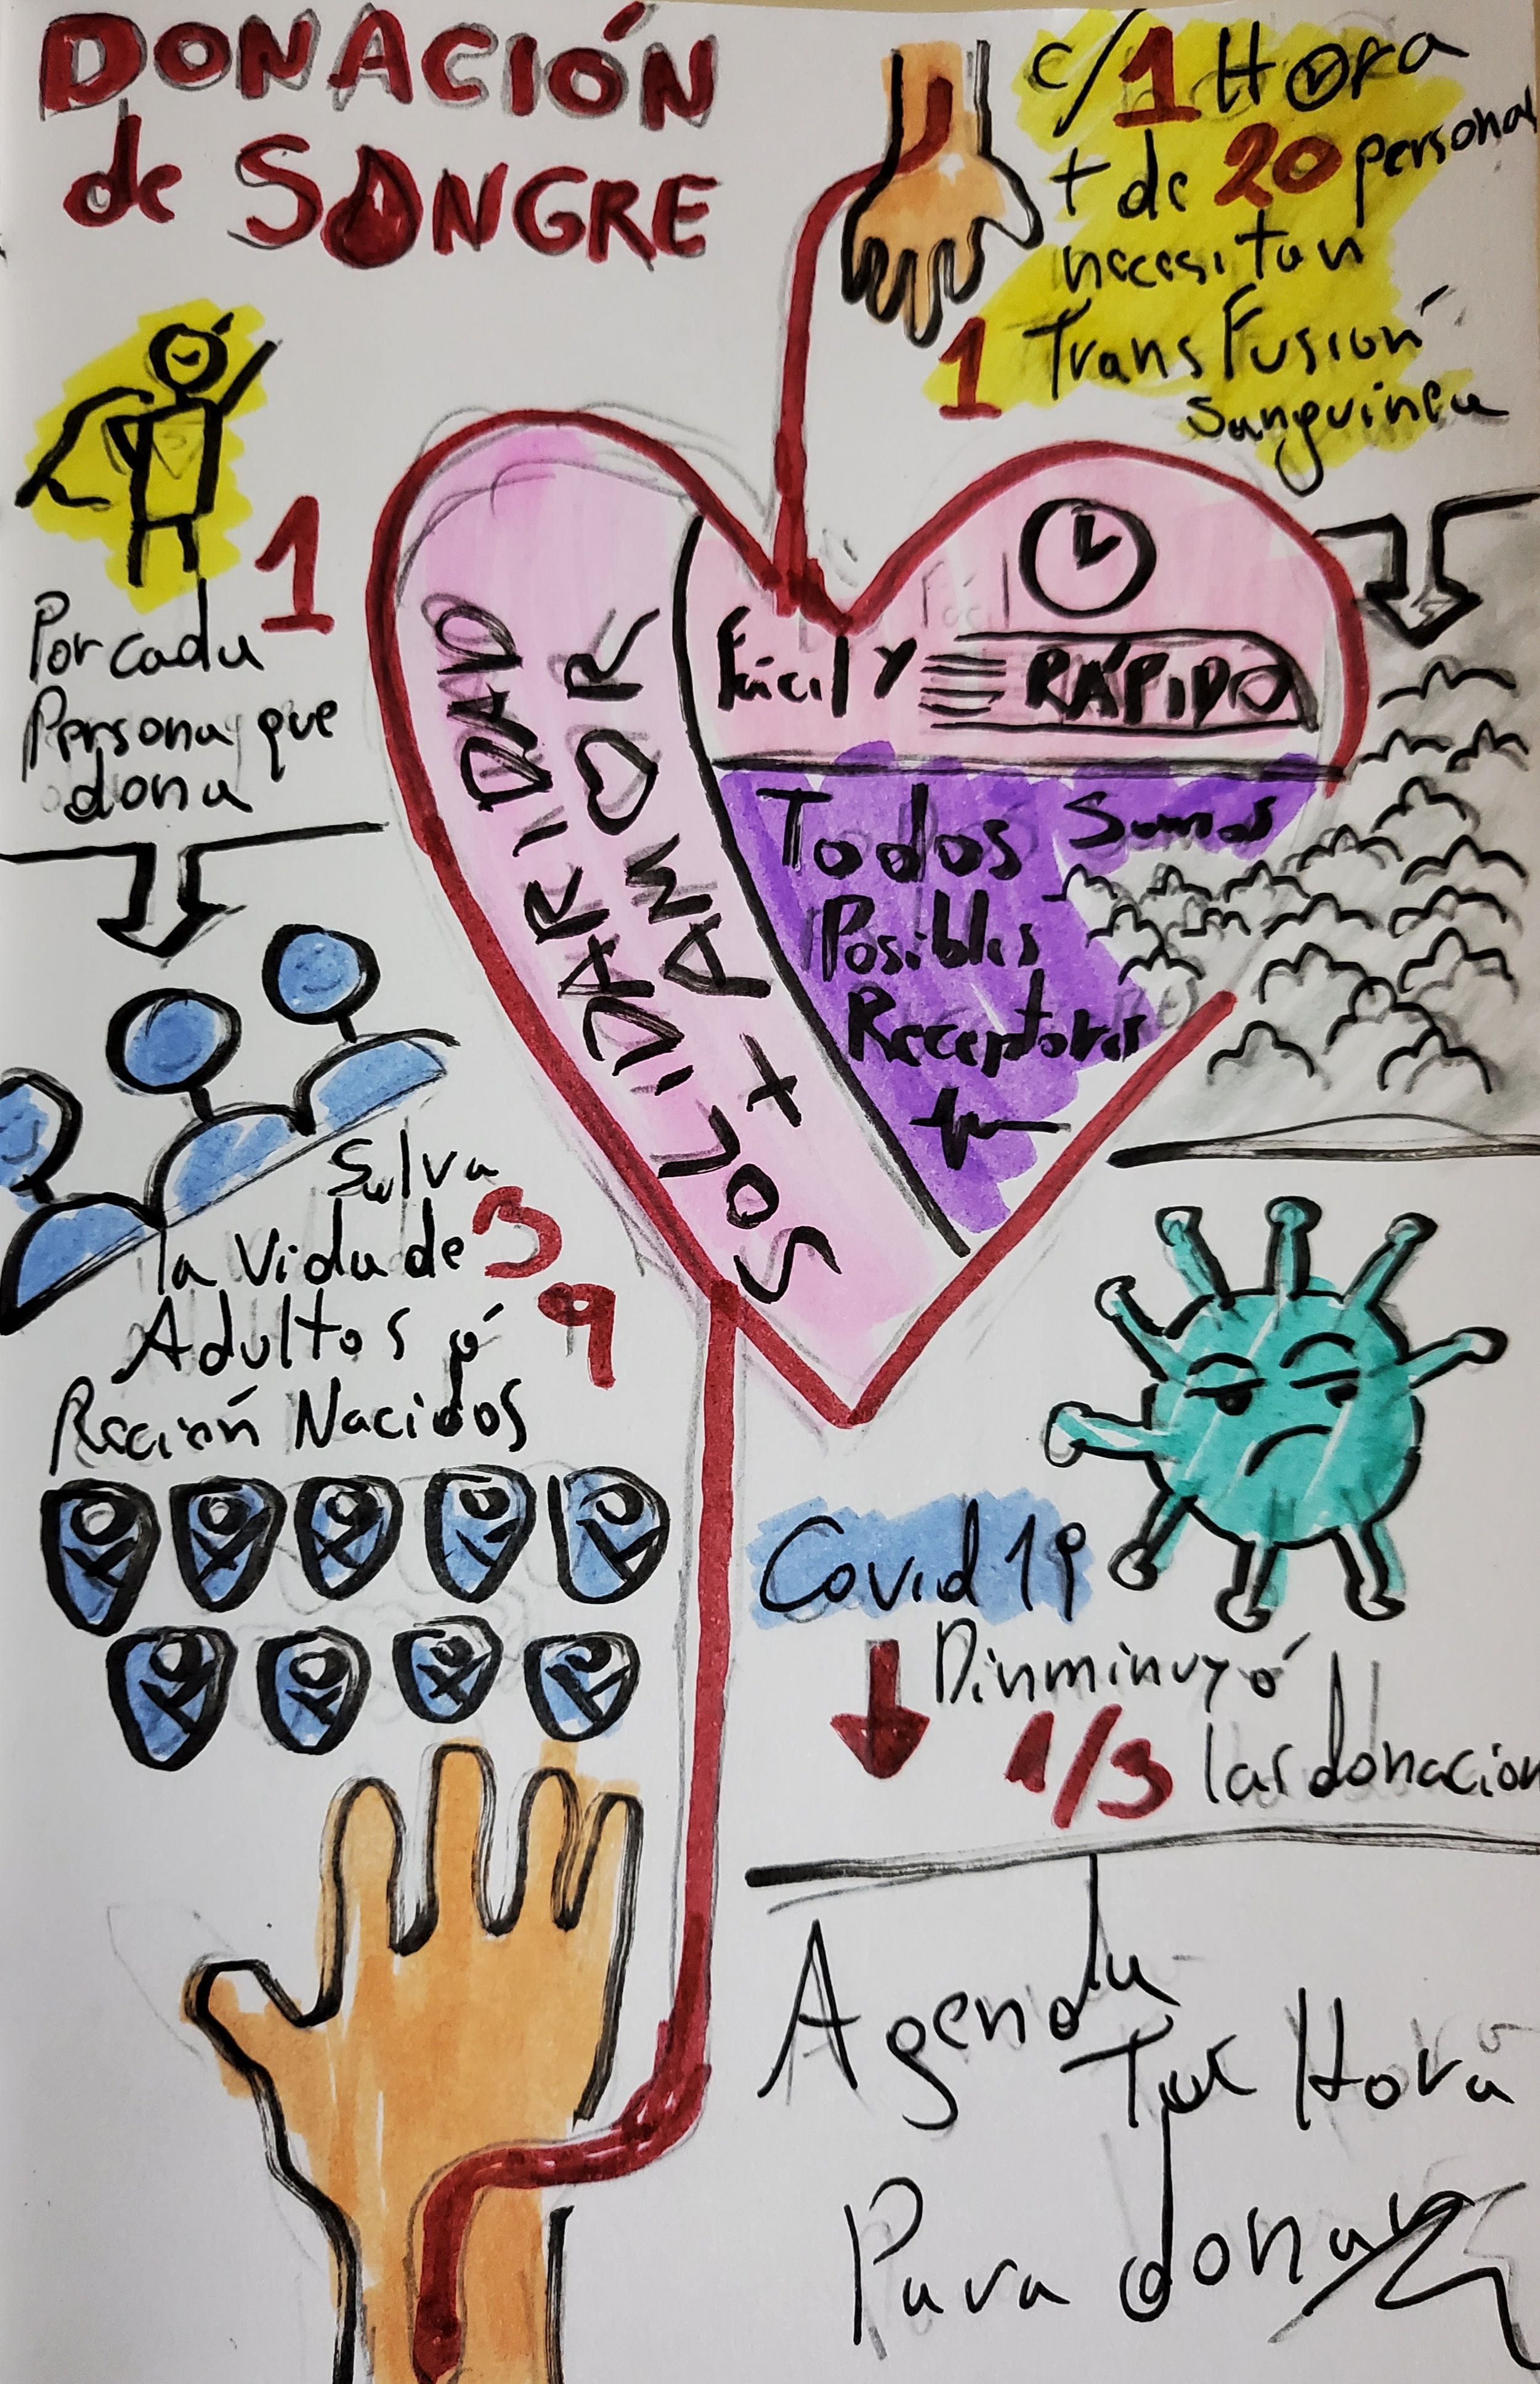 DONACIÓN
de SANGRE
c/1 Hora
+ de 20 personas
necesitan
1 Transfusión
sanguínea
1
Por cada
Persona que
dona
Salva
la vida de 3
Adultos ó 9
Recién Nacidos
SOLIDARIDAD
+ AMOR
Fácil y RÁPIDO
Todos Somos
Posibles
Receptores
Covid 19
Dinminuyó
1/3 las donacion
Agenda
Tu Hora
Para donar